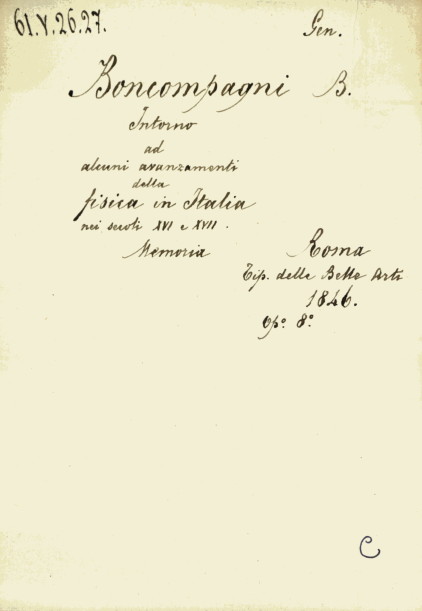 61.V.26.27.
Gen.
Boncompagni B.
Intorno
ad
alcuni avanzamenti
della
fisica in Italia
nei secoli XVI e XVII.
Memoria
Roma
Tip. delle Belle Arti
1846.
Op.° 8.°
C